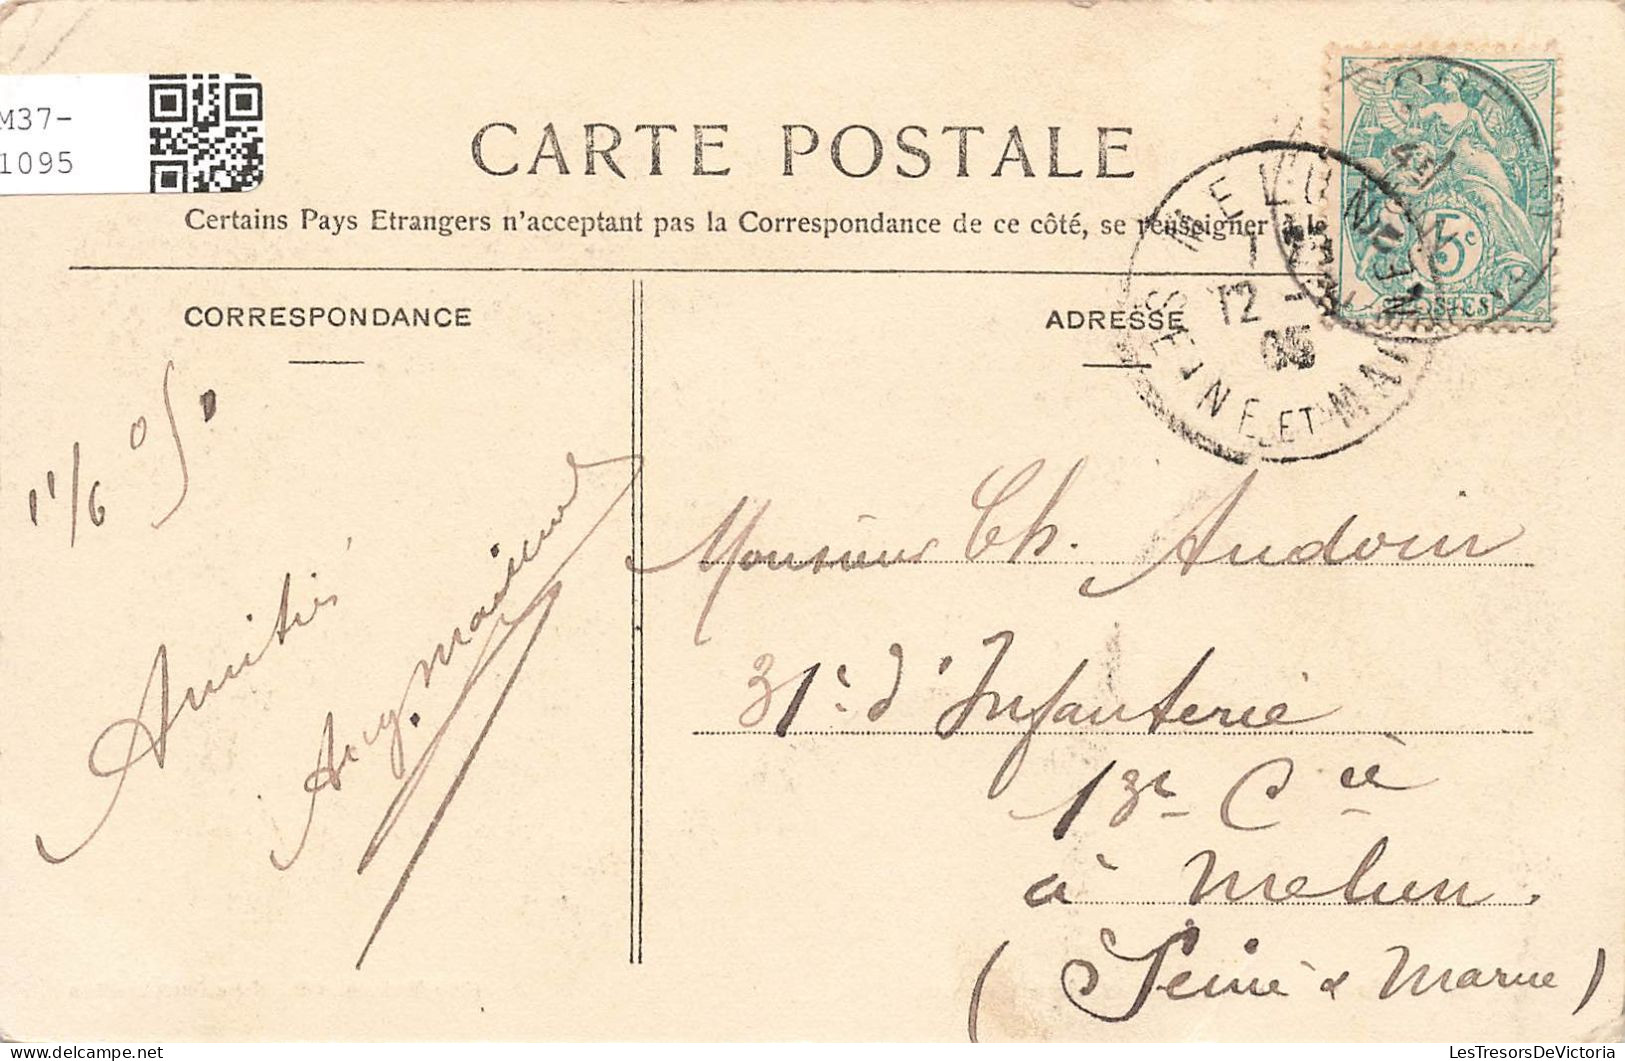 M37-
1095
CARTE POSTALE
Certains Pays Etrangers n'acceptant pas la Correspondance de ce côté, se renseigner à la
CORRESPONDANCE
ADRESSE
MELUN
12
05
SEINE ET MARNE
5c
POSTES
11/6 05
Amitiés
Aug.
Monsieur Ch. Audouin
31e d'Infanterie
13e Cie
à Melun.
(Seine & Marne)
LesTresorsDeVictoria